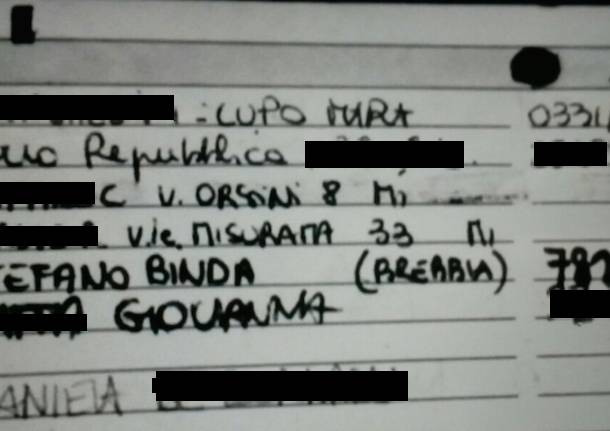 : LUPO MURA 0331/
Repubblica
C V. ORSINI 8 MI
V.le MISURATA 33 MI
EFANO BINDA (BREBBIA) 782
GIOVANNA
ANIELA